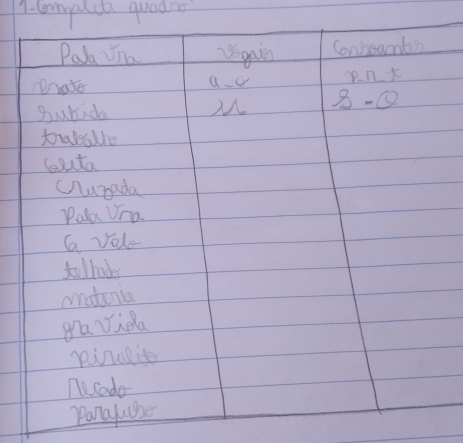 1-Complete quadro
Palavra vogais Consoantes
prato a-o p.r.t
subida u s-
trabalho
Cruzada
Palavra
Cavalo
telhado
materia
graviola
pirulito
recado
parafuso